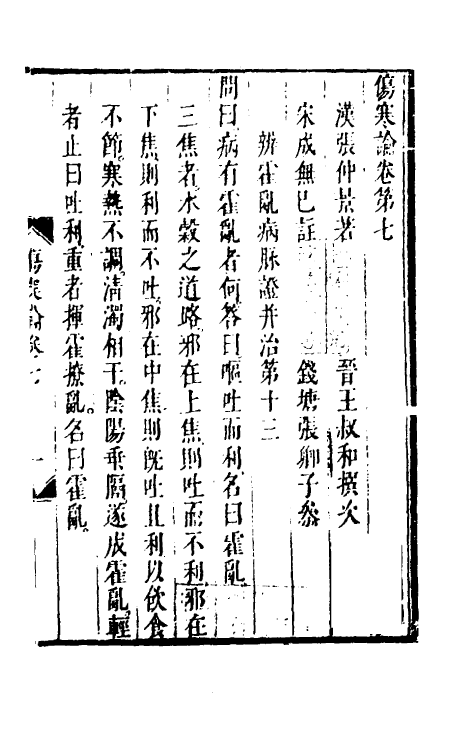 傷寒論卷第七
漢張仲景著　晉王叔和撰次
宋成無已註　錢塘張卿子參
辨霍亂病脉證并治第十三
問曰病有霍亂者何答曰嘔吐而利名曰霍亂
三焦者水穀之道路邪在上焦則吐而不利邪在
下焦則利而不吐邪在中焦則既吐且利以飲食
不節寒熱不調清濁相干陰陽乖隔遂成霍亂輕
者止曰吐利重者揮霍撩亂名曰霍亂
傷寒論卷七
一